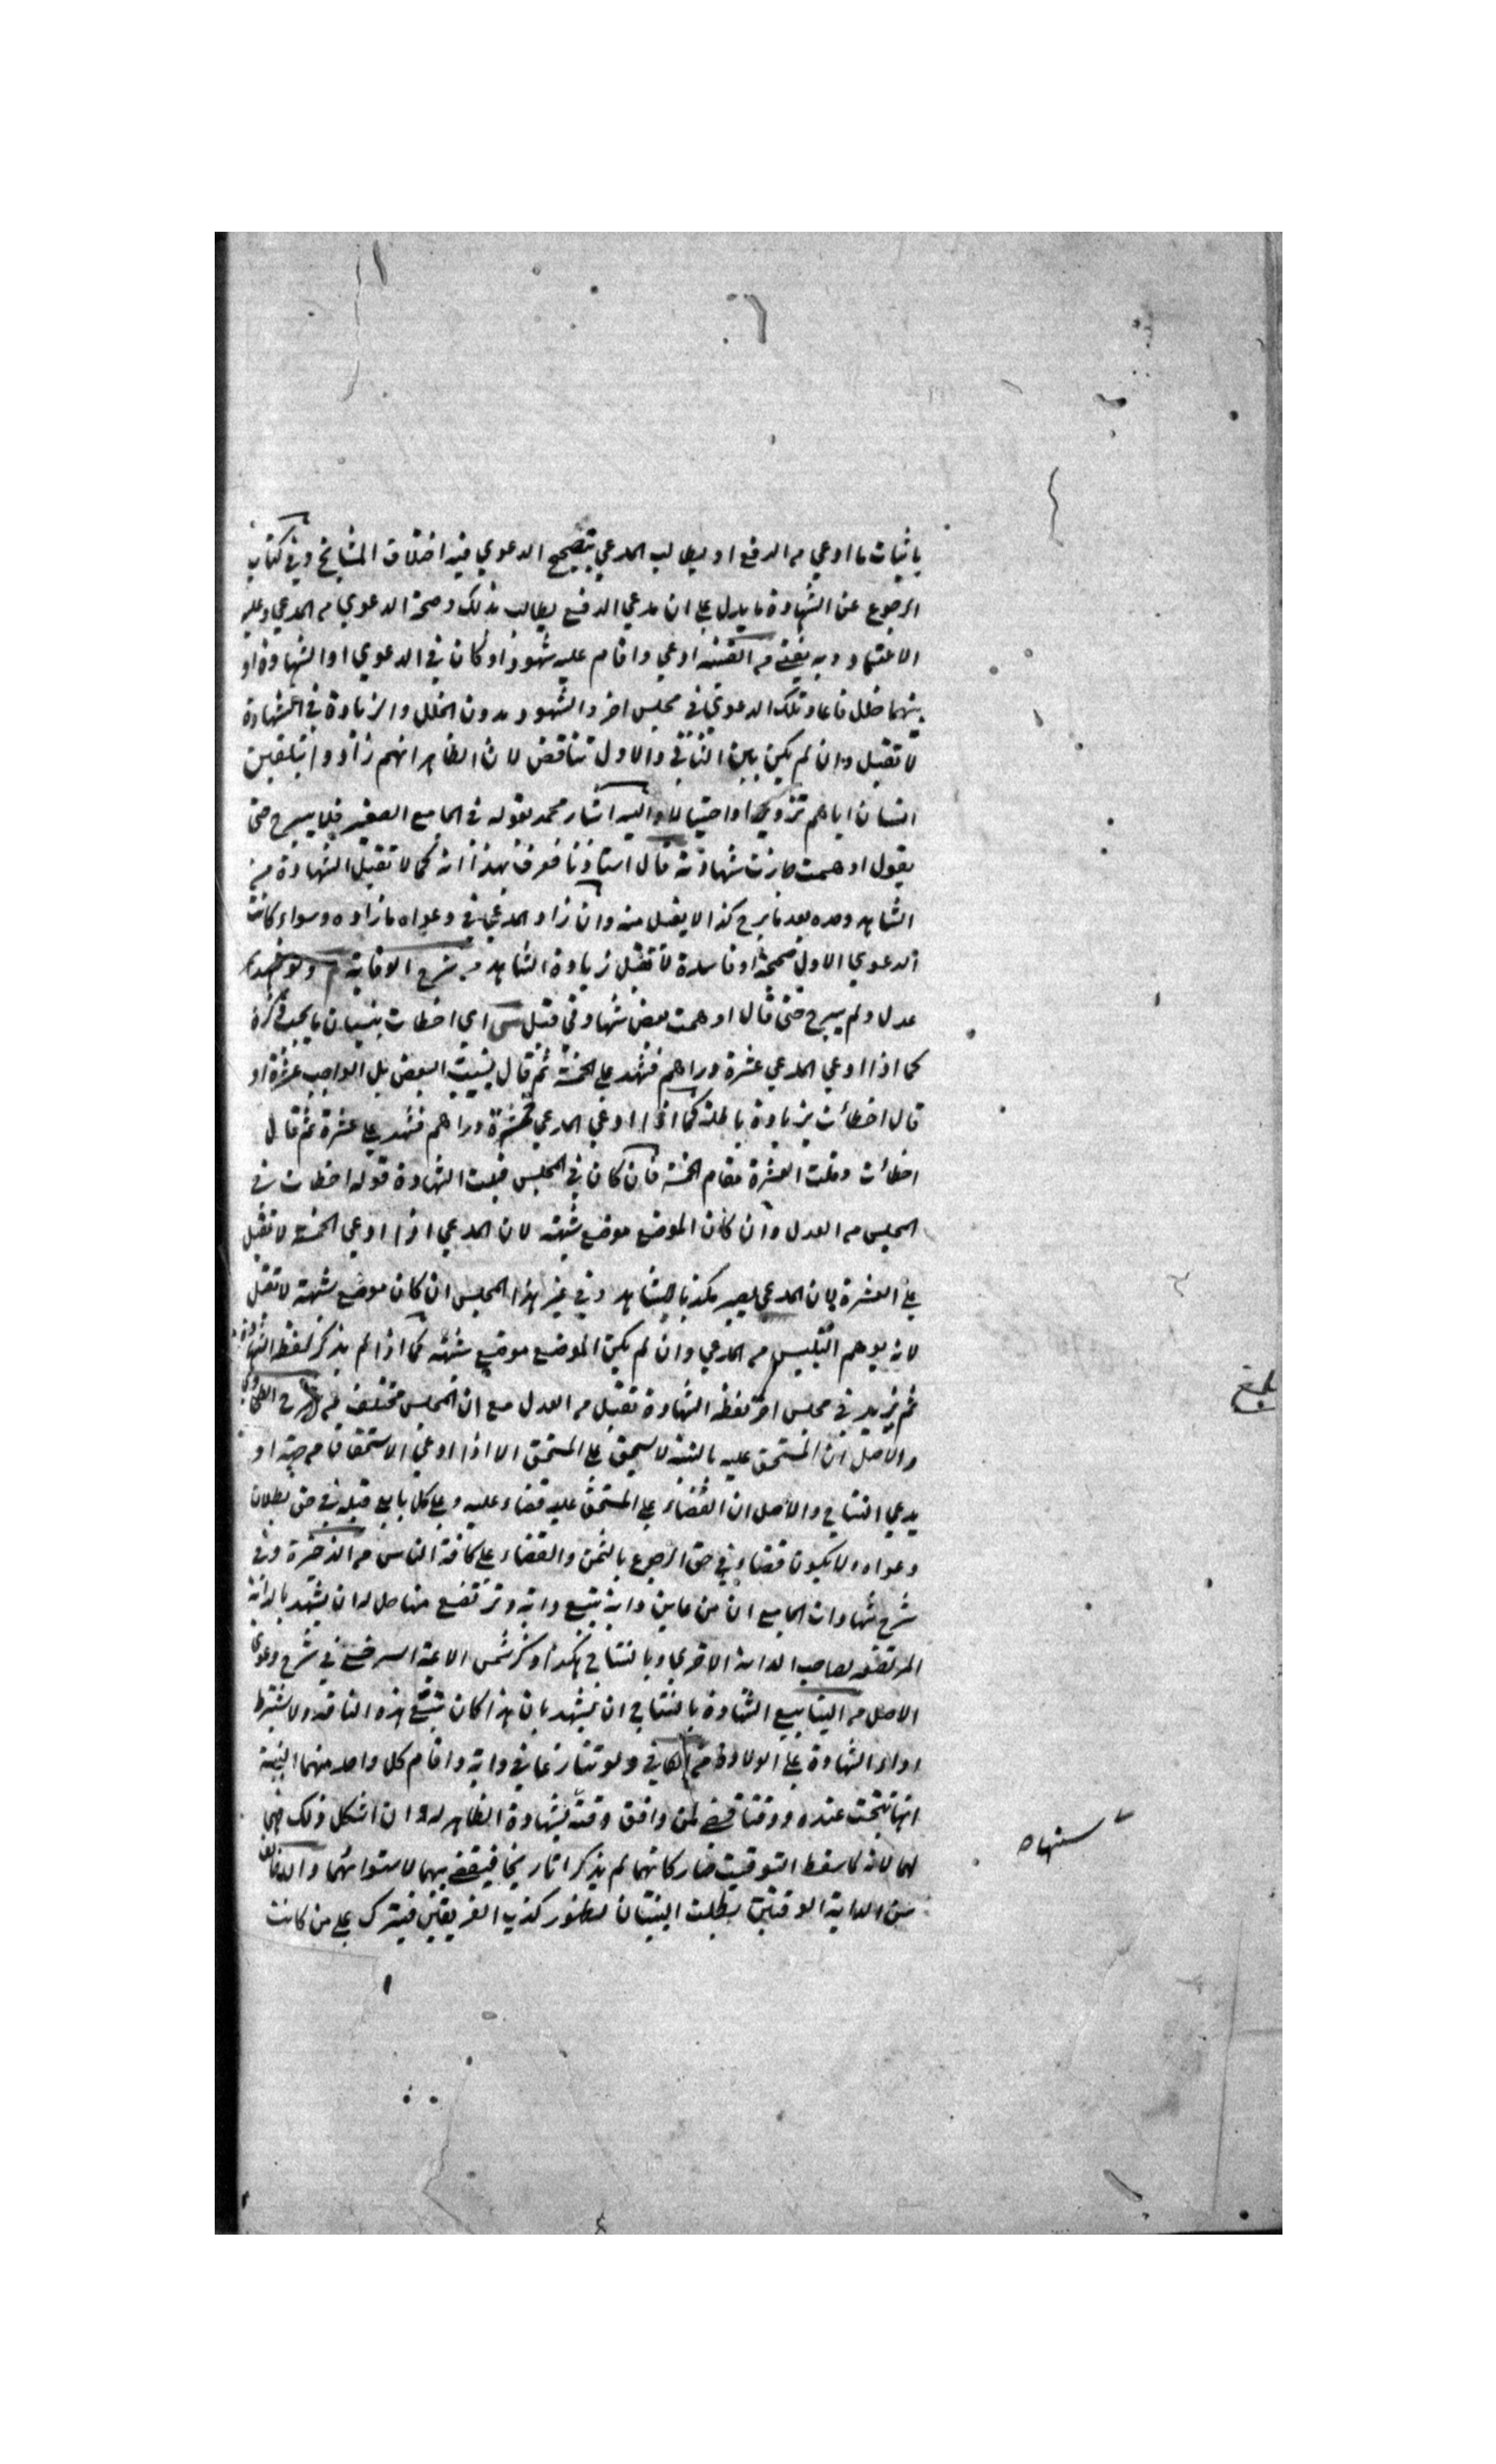 باثبات ما ادعي من الدفع او يطالب المدعي بتصحيح الدعوي فيه اختلاف المشايخ وفي كتاب
الرجوع عن الشهادة ما يدل علي ان مدعي الدفع يطالب بذلك وصحة الدعوي من المدعي وعليه
الاعتماد وبه يفتي من القنية ادعي واقام عليه شهودا وكان في الدعوي او الشهادة او
بينهما خلل فاعاد تلك الدعوي في مجلس اخر والشهود بدون الخلل والزيادة في الشهادة
لا تقبل وان لم يكن بين الثاني والاول تناقض لان الظاهر انهم زادوا بتلقين
انسان اياهم تزويرا او احتيالا واليه اشار محمد بقوله في الجامع الصغير فلم يبرح حتي
يقول اوهمت جازت شهادته قال استاذنا فعرف بهذا انه كما لا تقبل الشهادة من
الشاهد وحده بعد ما برح كذا لا يقبل منه وان زاد المدعي في دعواه ما زاده وسواء كانت
الدعوي الاولي صحيحة او فاسدة لا تقبل زيادة الشاهد من شرح الوقاية ولو شهد
عدل ولم يبرح حتي قال اوهمت بعض شهادتي قبل اي اخطات بنسيان ما يجب ذكره
كما اذا ادعي المدعي عشرة دراهم فشهد علي الخمسة ثم قال نسيت البعض بل الواجب عشرة او
قال اخطأت بزيادة باطلة كما اذا ادعي المدعي خمسة دراهم فشهد علي عشرة ثم قال
اخطأت وقلت العشرة مقام الخمسة فان كان في المجلس قبلت الشهادة قوله اخطات في
المجلس من العدل وان كان الموضع موضع شبهة لان المدعي اذا ادعي الخمسة لا تقبل
علي العشرة لان المدعي يصير مكذبا لشاهد وفي غير هذا المجلس ان كان موضع شبهة لا تقبل
لانه يوهم التلبيس من المدعي وان لم يكن الموضع موضع شبهة كما اذا لم يذكر لفظ الشهادة
ثم يزيد في مجلس اخر لفظ الشهادة تقبل من العدل مع ان المجلس مختلف من شرح الطحاوي
والاصل ان المستحق عليه بالبينة لا يستحق علي المستحق الا اذا ادعي الاستحقاق من جهته او
يدعي النتاج والاصل ان القضاء علي المستحق عليه قضاء عليه وعلي كل بايع قبله في حق بطلان
دعواه ولا يكون قضاء في حق الرجوع بالثمن والقضاء علي كافة الناس من الذخيرة وفي
شرح شهادات الجامع ان من عاين دابة تتبع دابة وترتضع منها حل له ان يشهد بالدابة
المرتضعة لصاحب الدابة الاخري وبالنتاج هكذا ذكر شمس الائمة السرخسي في شرح دعوي
الاصل من الينابيع الشهادة بالنتاج ان يشهد بان هذا كان تتبع هذه الناقة ولا يشترط
اداء الشهادة علي الولادة من الكافي ولو تنازعا في دابة واقام كل واحد منهما البينة
انها نتجت عنده ووقتا قضي لمن وافق وقته لشهادة الظاهر له وان اشكل ذلك فهي
لهما لانه لما سقط التوقيت صار كانهما لم يذكرا تاريخا فيقضي بينهما لاستوائهما وان خالف
سن الدابة الوقتين بطلت البينتان لظهور كذب الفريقين فيترك علي من كانت
بلغ